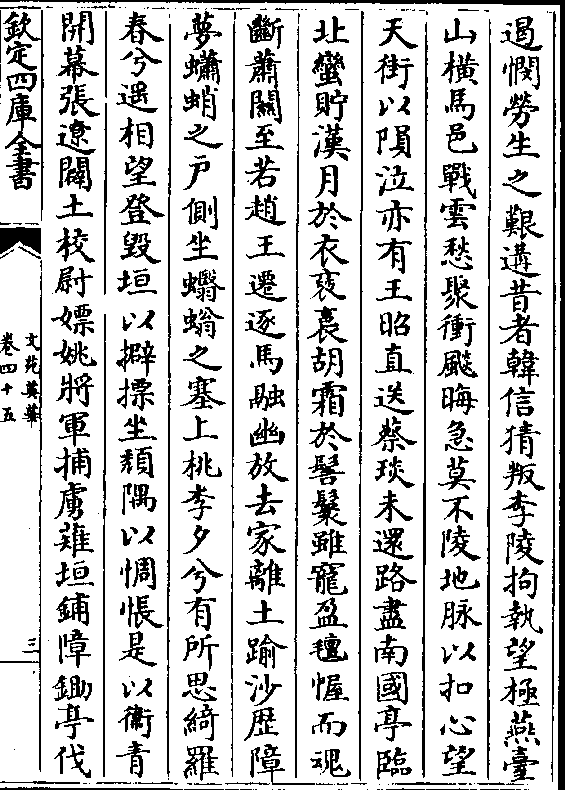 遏憫勞生之艱遘昔者韓信猜叛李陵拘執望極燕臺
山橫馬邑戰雲愁聚衝飈晦急莫不陵地脉以扣心望
天街以隕泣亦有王昭直送蔡琰未還路盡南國亭臨
北蠻貯漢月於衣袤裛胡霜於髻鬟雖寵盈氊幄而魂
斷蕭關至若趙王遷逐馬融幽放去家離土踰沙歴障
夢蠨蛸之戸側坐蠮螉之塞上桃李夕兮有所思綺羅
春兮遥相望登毁垣以擗摽坐頽隅以惆悵是以衞青
開幕張遼闢土校尉嫖姚將軍捕虜薙垣鋪障鋤亭伐
欽定四庫全書
文苑英華
卷四十五
三